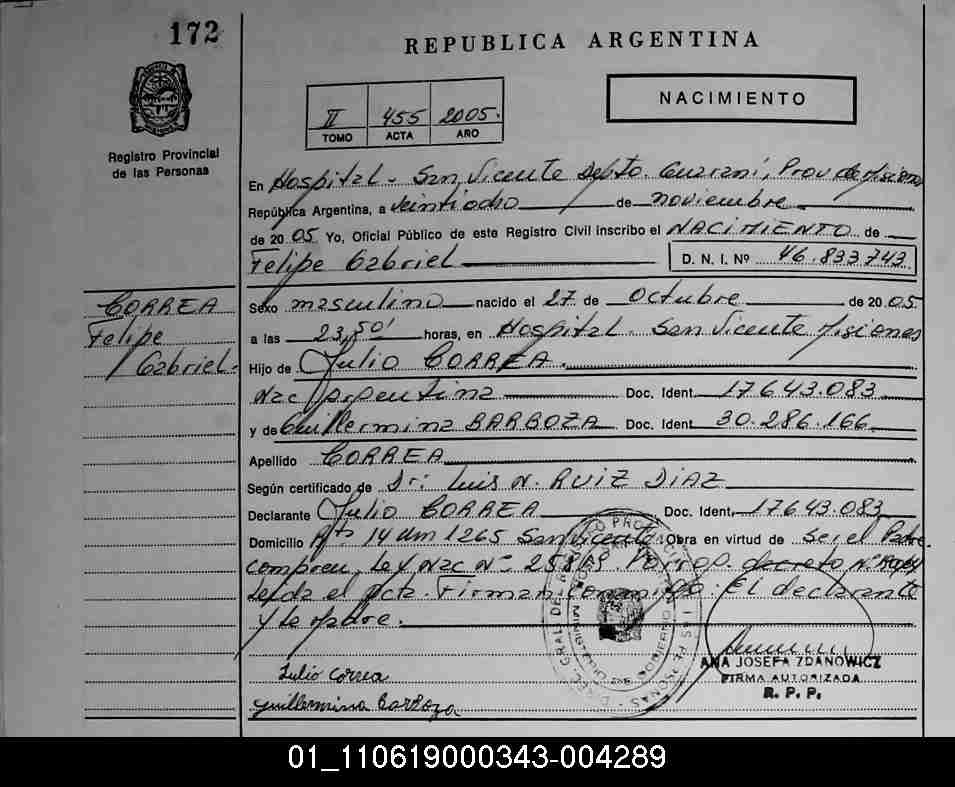 172
REPUBLICA ARGENTINA
NACIMIENTO
II 455 2005.
TOMO ACTA AÑO
Registro Provincial
de las Personas
En Hospital - San Vicente Depto. Guaraní, Prov de Misiones
República Argentina, a veintiocho de noviembre
de 2005 Yo, Oficial Público de este Registro Civil inscribo el NACIMIENTO de
Felipe Gabriel D. N. I. Nº 46.833.743
CORREA
Felipe
Gabriel.
Sexo masculino nacido el 27 de Octubre de 2005
a las 23,50' horas, en Hospital. San Vicente Misiones
Hijo de Julio CORREA.
Nac Argentina Doc. Ident. 17643.083
y de Guillermina BARBOZA Doc. Ident 30.286.166
Apellido CORREA
Según certificado de Dr: Luis N. RUIZ DIAZ
Declarante Julio CORREA Doc. Ident. 17643.083
Domicilio Rta 14 Km 1265 San Vicente Obra en virtud de Ser el Padre.
Ley Nac Nº 25865. decreto Nº
Leída el Acta. Firman conmigo. El declarante
y la Madre.
Julio Correa
Guillermina Barboza
ANA JOSEFA ZDANOWICZ
FIRMA AUTORIZADA
R. P. P.
01_110619000343-004289